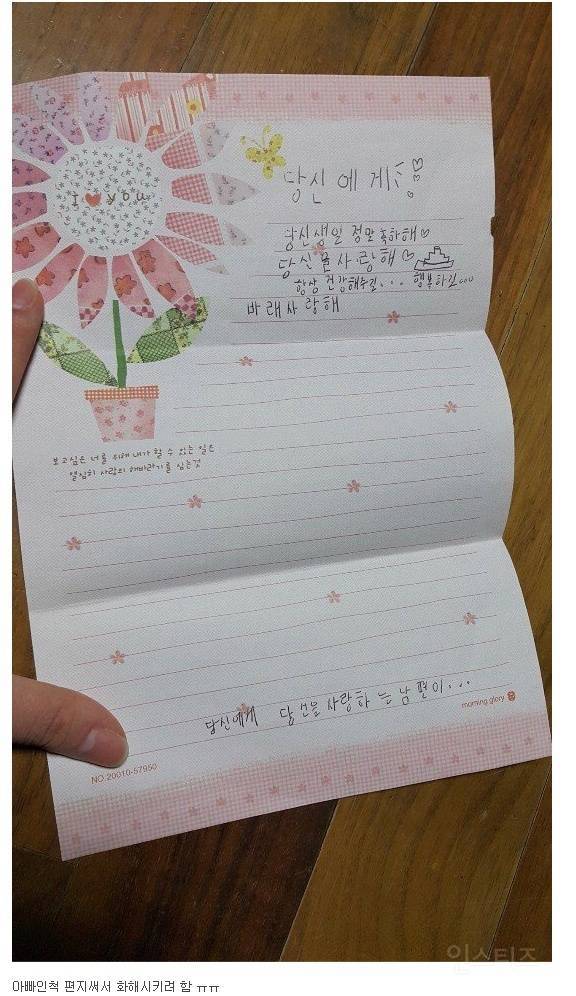 당신에게
I ♥ you
당신생일 정말 축하해♡
당신을사랑해♡
항상 건강해주길... 행복하길...
바래사랑해
보고싶은 너를 위해 내가 할 수 있는 일은
열심히 사랑의 해바라기를 심는것
당신에게 당신을사랑하는남편이...
morning glory
NO.20010-57950
인스티즈
아빠인척 편지써서 화해시키려 함 ㅠㅠ